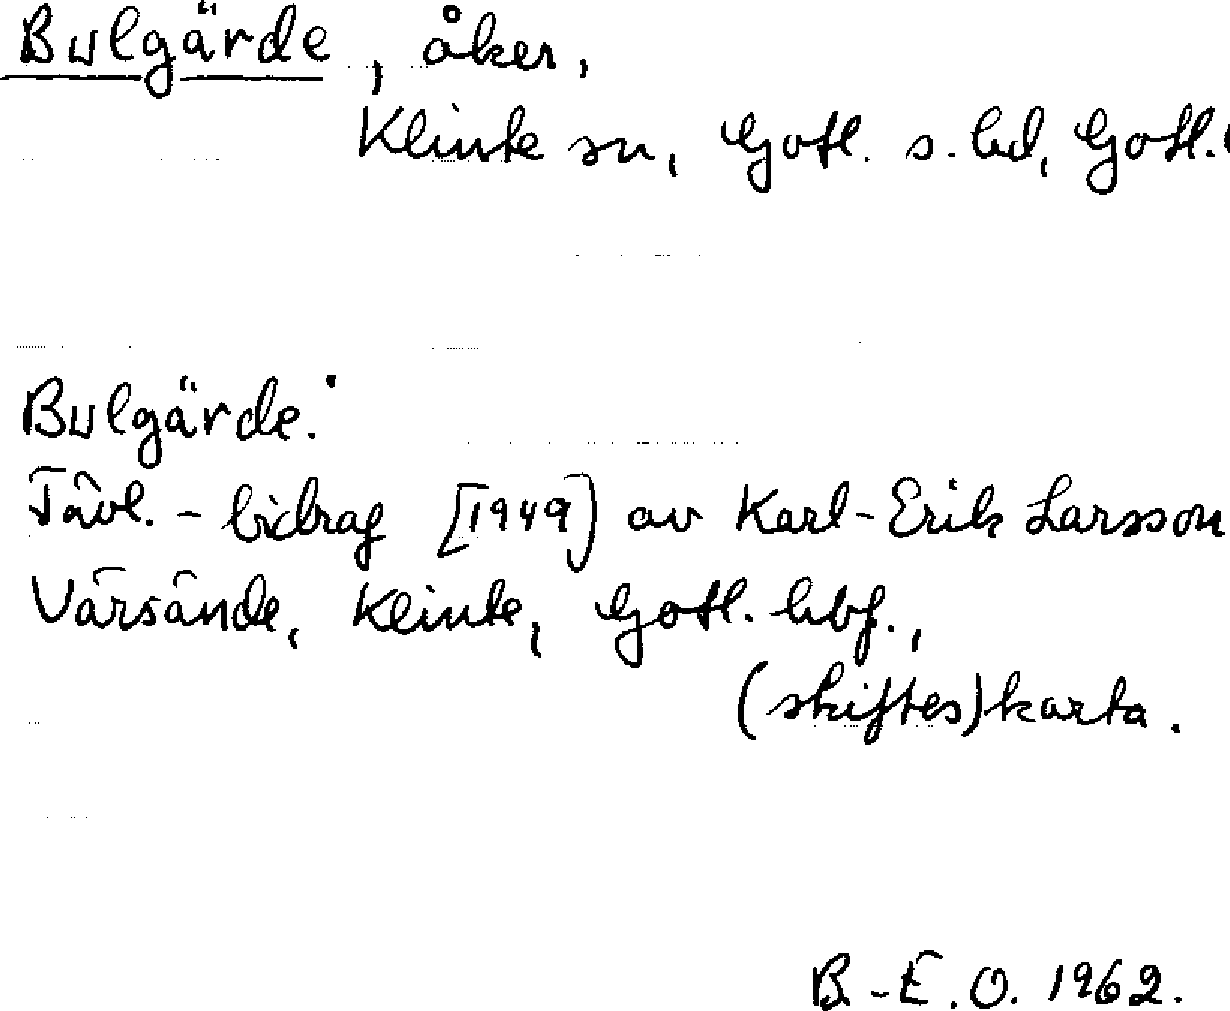 Bulgärde, åker,
Klinte sn, Gotl. s. hd, Gotl.
Bulgärde.
Tävl.-bidrag [1949] av Karl-Erik Larsson
Värsände, Klinte, Gotl. hbf.,
(skiftes)karta.
B.-E.O. 1962.